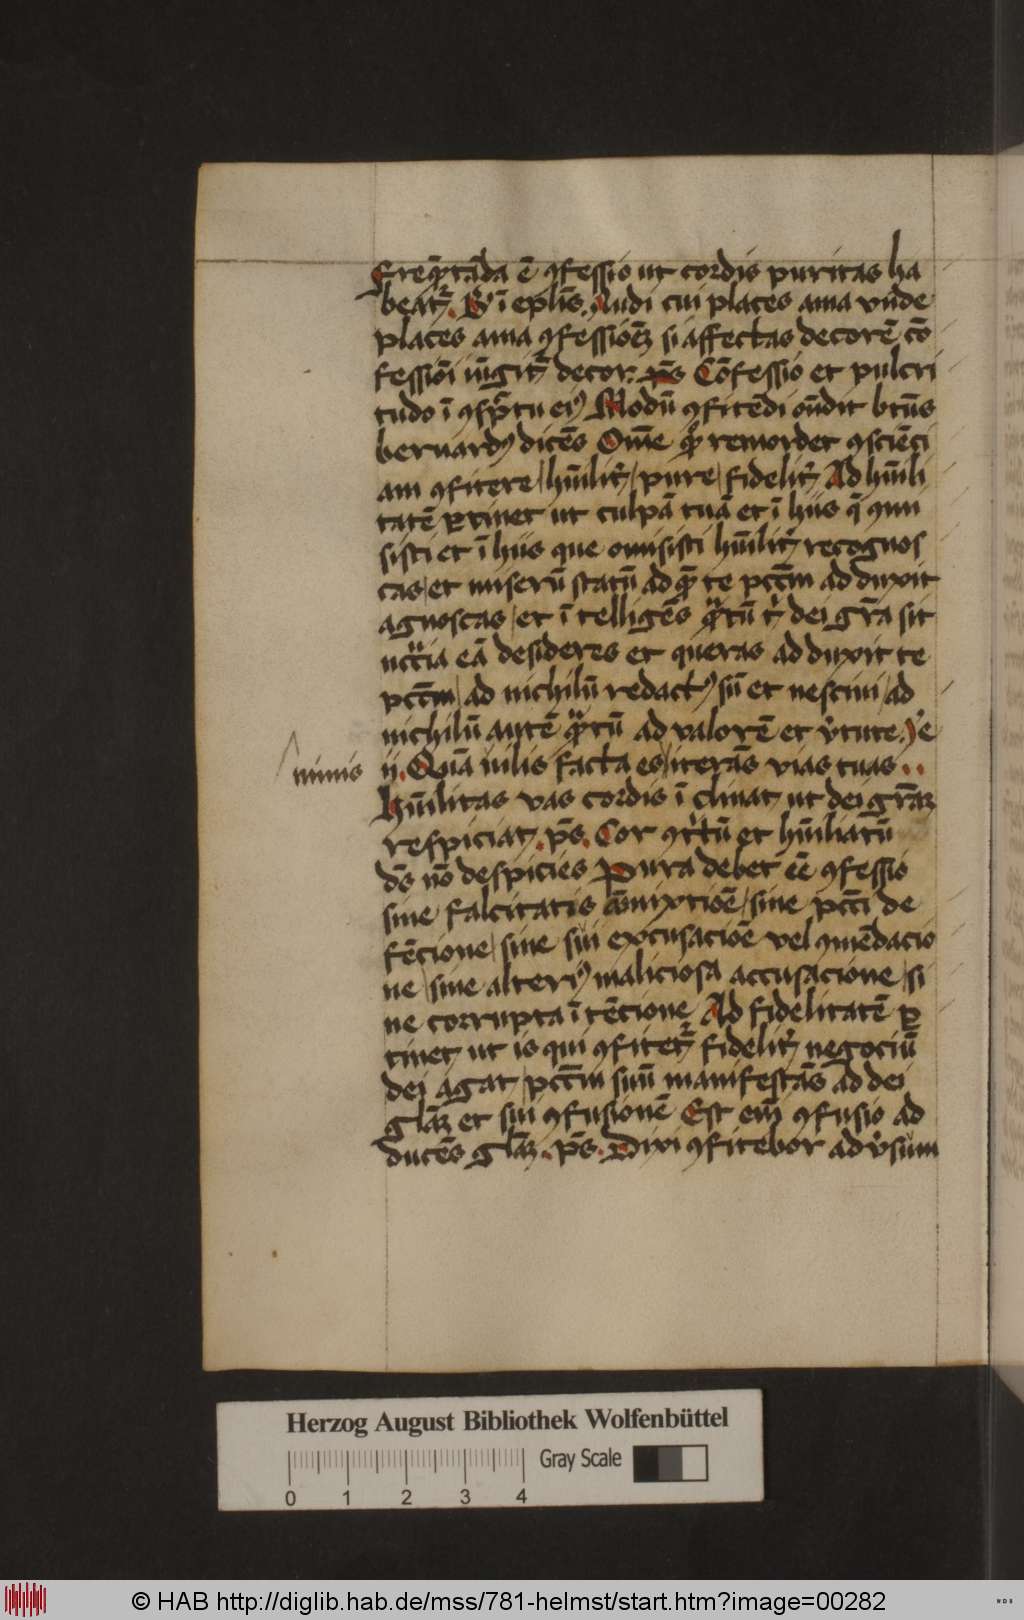 Freqn̄tāda ē ꝯfessio ut cordis puritas ha
beat᷑. B᷑ ī ep̄lis. Audi cui places ama vnde
places ama ꝯfessiōeꝫ si affectas decorē cō
fessiōi iūgit᷑ decor. p̄s Cōfessio et pulcri
tudo ī ꝯsp̄tu eiꝰ Modū ꝯfitēdi oñdit btūs
bernardꝰ dicēs Om̄e qd̄ remordet ꝯsciēci
am ꝯfitere hūilit᷑ pure fidelit᷑ Ad hūili
tatē ꝑtinet ut culpā tuā et ī hiis q̄ ꝯmi
sisti et ī hiis que omisisti hūilit᷑ recognos
cas et miserū statū ad quē te pccm̄ ad duxit
agnoscas et ī telligēs qͣtū t͛ dei gr̄a sit
nccͣia eā desideres et queras ad duxit te
pccm̄ ad nichilū redactꝰ sū et nesciui ad
nichilū autē qͣtū ad valorē et v͛tute. Je
nimis
ij. Quā uilis facta es iterās vias tuas
Hūilitas vas cordis ī clinat ut dei gr̄aꝫ
respiciat. p̄s. Cor ꝯt͛tū et hūiliatū
ds̄ nō despicies Pura debet eē ꝯfessio
sine falcitatis am̄ixtiōe sine pccī de
fēcione sine sui excusaciōe vel ꝯmēdacio
ne sine alteriꝰ maliciosa accusacione si
ne corrupta ī tēcione Ad fidelitatē ꝑ
tinet ut is qui ꝯfitet᷑ fidelit᷑ negociū
dei agat pccm̄ suū manifestās ad dei
gl̄aꝫ et sui ꝯfusionē Est em̄ ꝯfusio ad
ducēs gl̄aꝫ. p̄s. Dixi ꝯfitebor adv͛sum
Herzog August Bibliothek Wolfenbüttel
Gray Scale
0 1 2 3 4
© HAB http://diglib.hab.de/mss/781-helmst/start.htm?image=00282